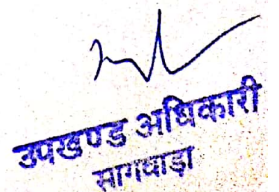 उपखण्ड अधिकारी
सागवाड़ा